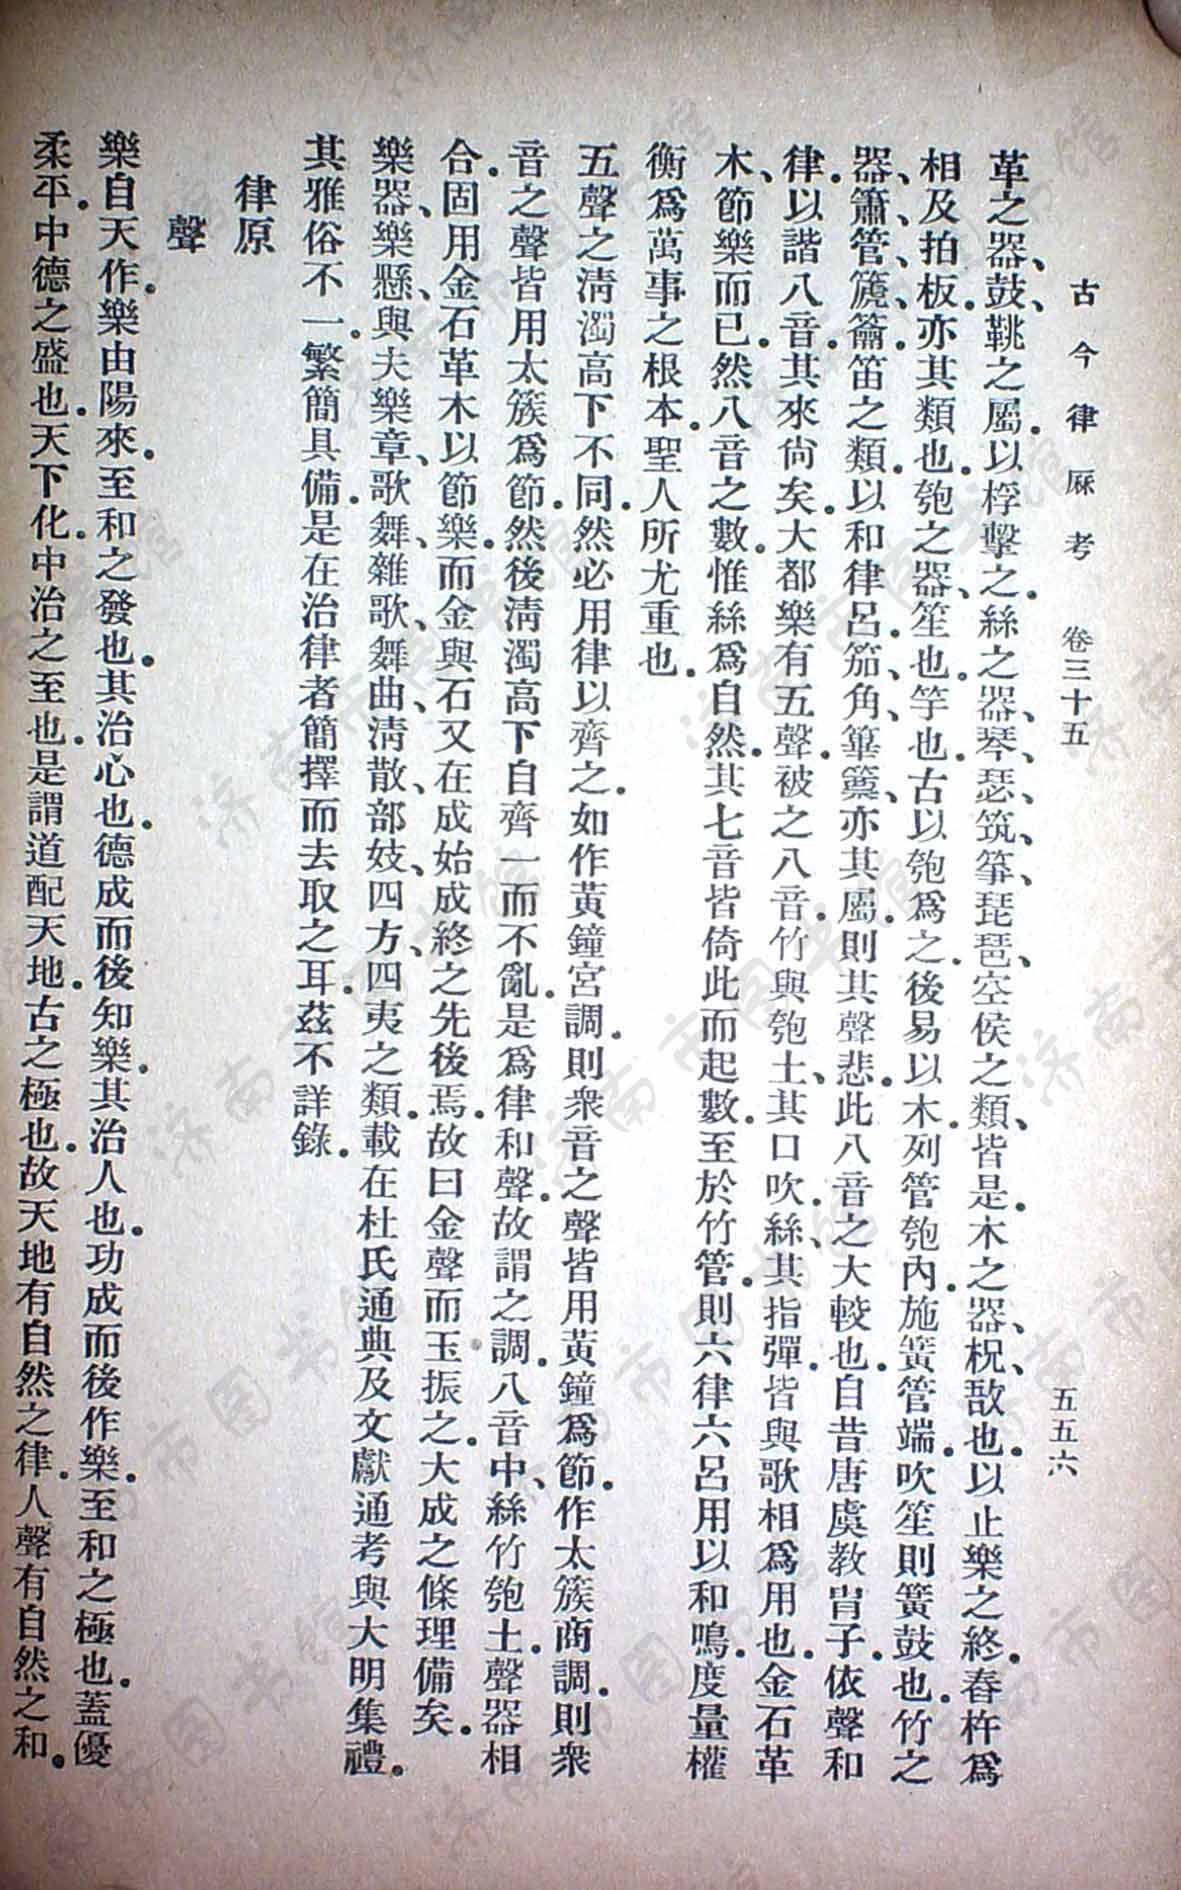 古今律厤考　卷三十五　五五六
革之器、鼓、鞉之屬。以桴擊之。絲之器、琴、瑟、筑、箏、琵琶、空侯之類、皆是。木之器、柷、敔也。以止樂之終。舂杵爲
相及拍板。亦其類也。匏之器、笙也。竽也。古以匏爲之。後易以木。列管匏內。施簧管端。吹笙則簧鼓也。竹之
器、簫、管、篪、籥。笛之類。以和律呂。笳、角、篳篥、亦其屬。則其聲悲。此八音之大較也。自昔唐虞教冑子。依聲和
律。以諧八音。其來尙矣。大都樂有五聲。被之八音。竹與匏土、其口吹。絲、其指彈。皆與歌相爲用也。金石革
木、節樂而已。然八音之數。惟絲爲自然。其七音皆倚此而起數。至於竹管。則六律六呂用以和鳴。度量權
衡爲萬事之根本。聖人所尤重也。
五聲之淸濁高下不同。然必用律以齊之。如作黃鐘宮調。則衆音之聲皆用黃鐘爲節。作太簇商調。則衆
音之聲皆用太簇爲節。然後淸濁高下自齊一而不亂。是爲律和聲。故謂之調。八音中、絲竹匏土。聲器相
合。固用金石革木以節樂。而金與石又在成始成終之先後焉。故曰金聲而玉振之。大成之條理備矣。
樂器、樂懸、與夫樂章、歌舞、雜歌、舞曲、淸散、部妓、四方、四夷之類。載在杜氏通典及文獻通考與大明集禮。
其雅俗不一。繁簡具備。是在治律者簡擇而去取之耳。茲不詳錄。
律原
聲
樂自天作。樂由陽來。至和之發也。其治心也。德成而後知樂。其治人也。功成而後作樂。至和之極也。蓋優
柔平。中德之盛也。天下化。中治之至也。是謂道配天地。古之極也。故天地有自然之律。人聲有自然之和。